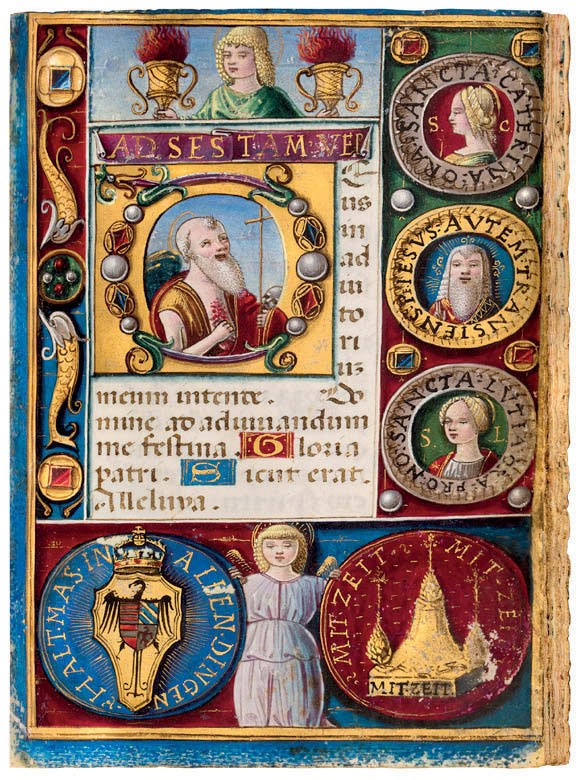 AD·SESTAM·VER
e
us
in
ad
iu
to
ri
uz
meum intente. Do
mine ad adiuuandum
me festina. Gloria
patri. Sicut erat.
Alleluya.
SANCTA·CATERINA·ORA
S· C·
IESVS·AVTEM·TRANSIENS·
SANCTA·LUTIA·ORA·PRO·NO·
S· L·
HALT·MAS·IN·ALLEN·DINGEN·
MIT·ZEIT·MIT·ZEI
MIT·ZEIT·